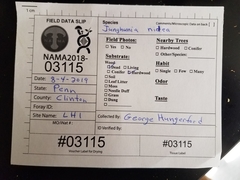 FIELD DATA SLIP
NAMA2018-
03115
Date: 8-4-2019
State: Penn
County: Clinton
Foray ID:
Site Name: LH1
#03115
Species
Junghuhnia nitida
Field Photos:
Yes No
Substrate:
Wood
Dead Living
Conifer Hardwood
Soil
Leaf Litter
Moss
Needle Duff
Grass
Dung
Nearby Trees
Hardwood Conifer
Other/Species:
Habit
Single Few Many
Odor
Taste
Collected By: George Hungerford
ID Verified By:
#03115